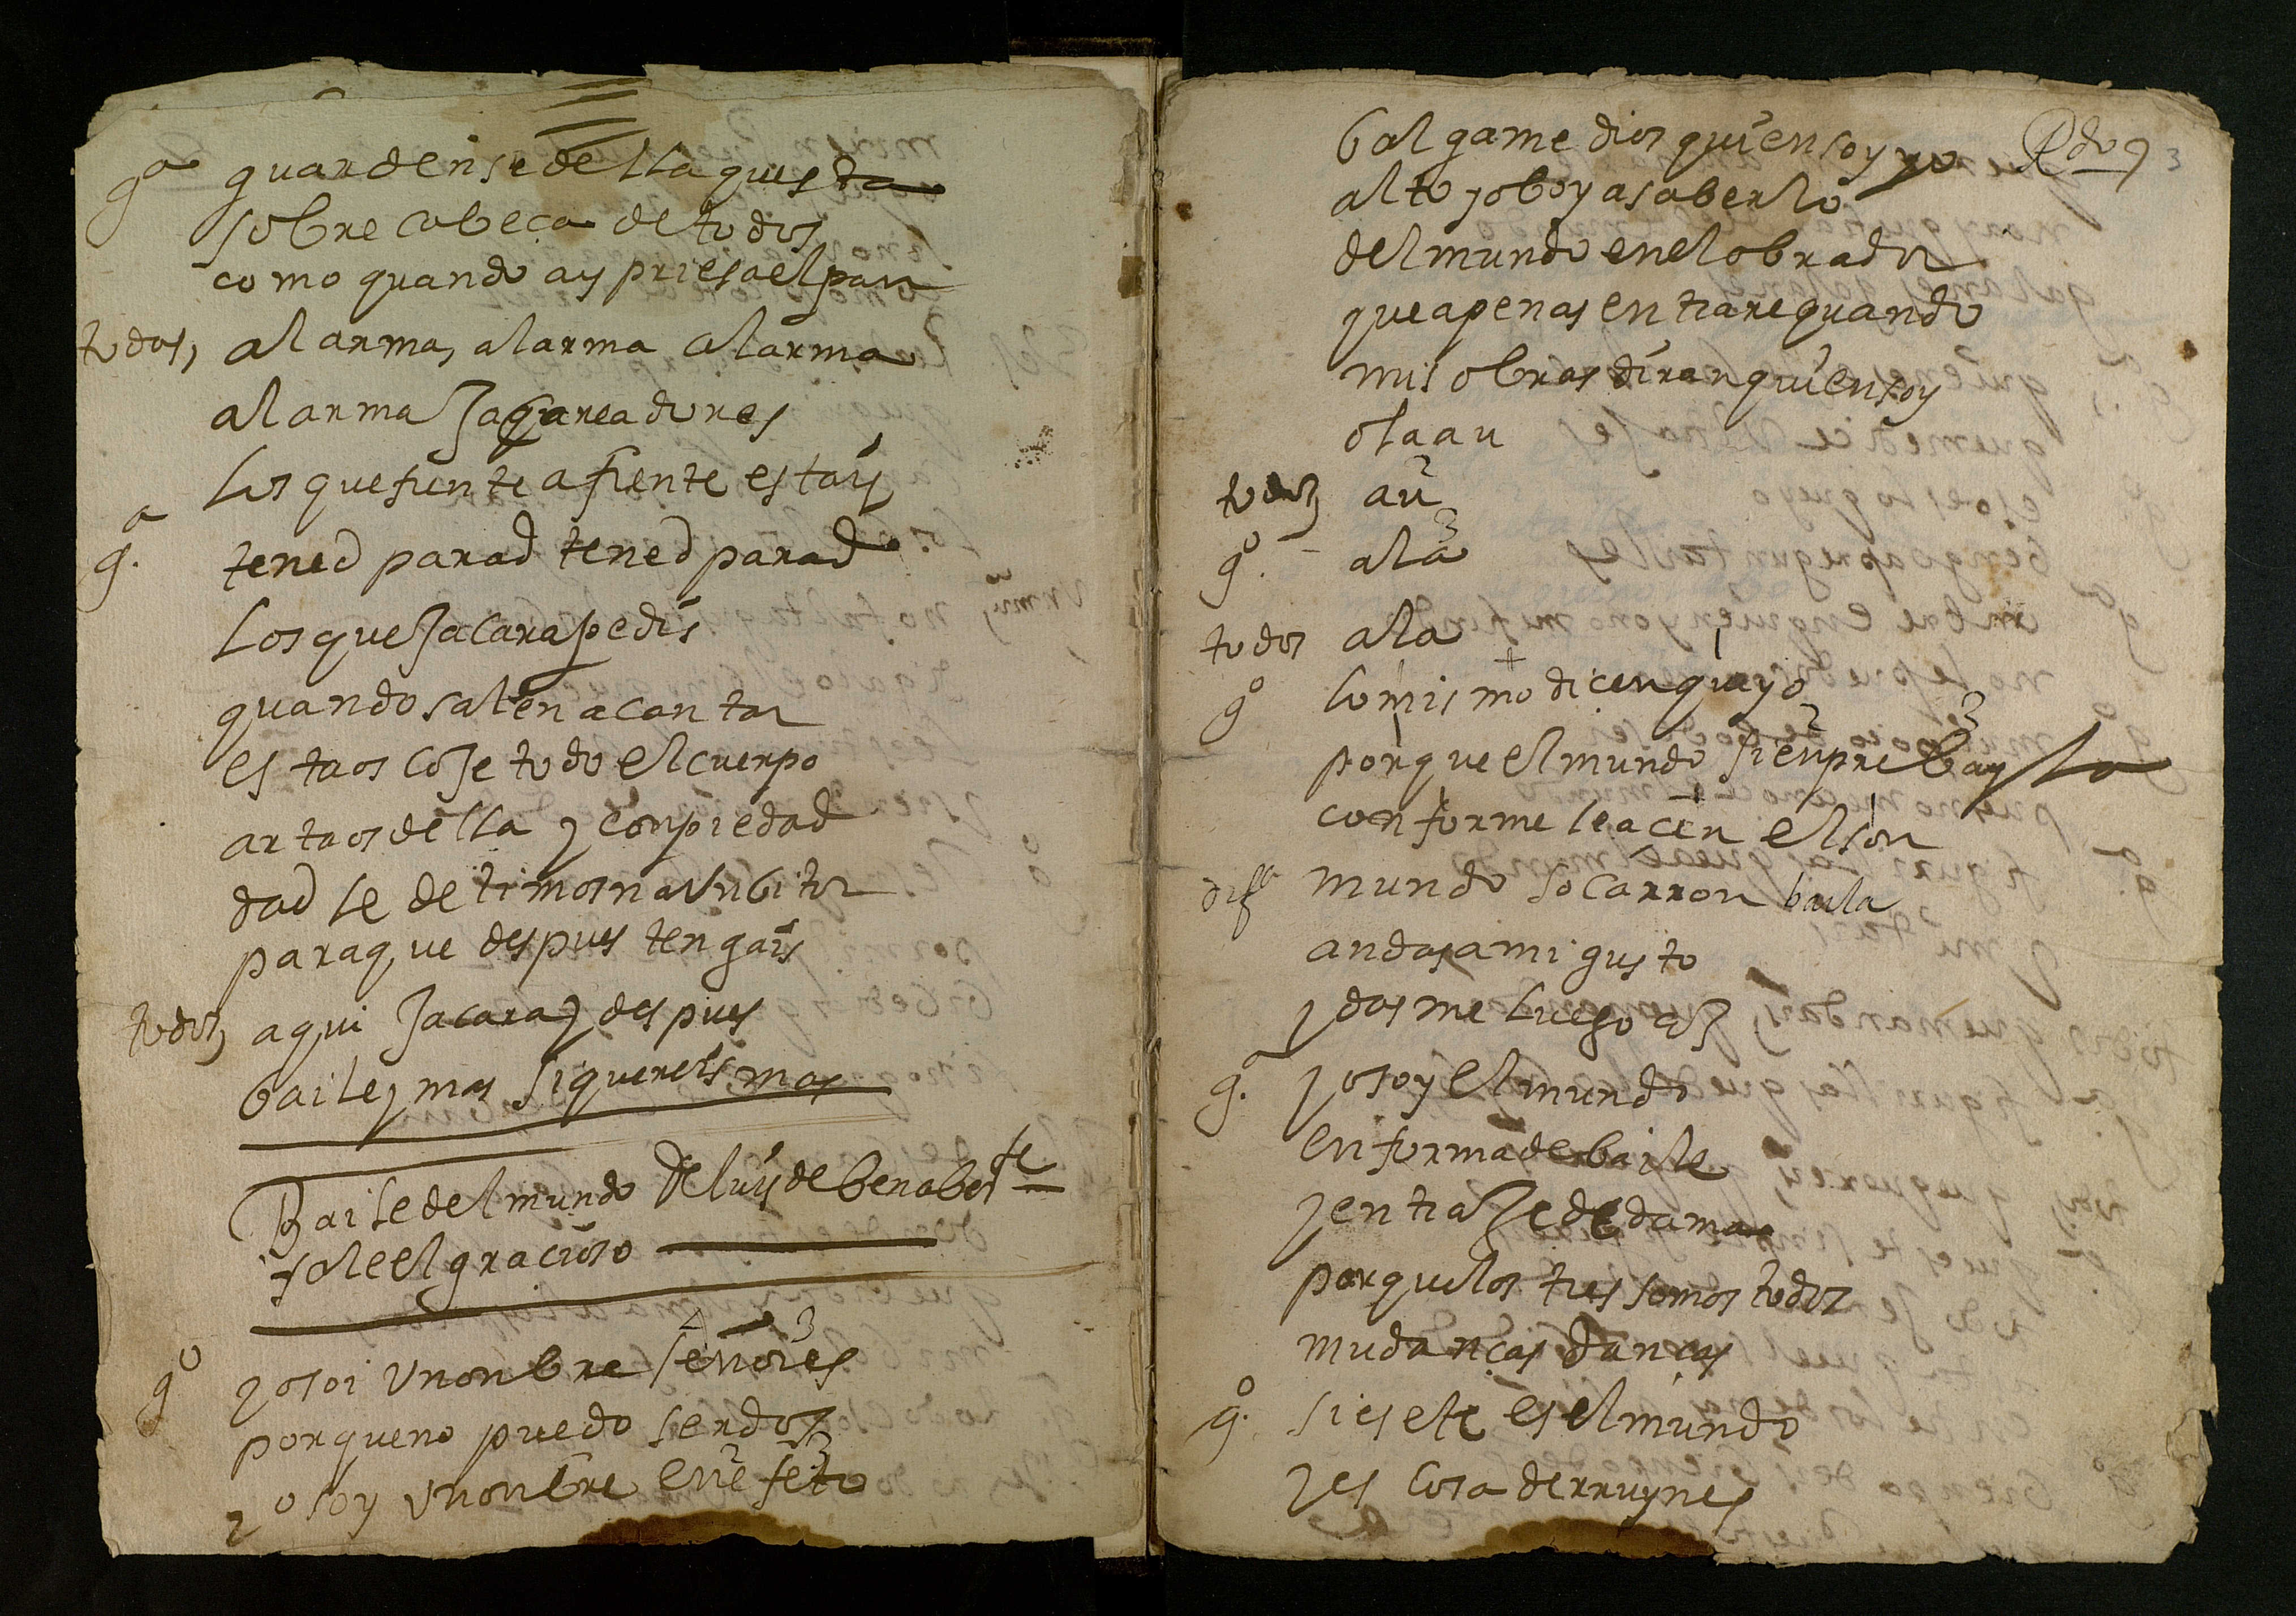 gª guardense della questa
sobre cabeça de todos
como quando ay priesa el pan
todos, al arma, al arma al arma
al arma Jacareadores
los que frente a frente estays
gª. tened parad tened parad
los que Jacara pedis
quando salen a cantar
estaos coje todo el cuerpo
artaos della y con piedad
dadle de limosna un bitor
para que despues tengais
todos aqui Jacara y despues
baile y mas si quereis mas
Baile del mundo De luys de benabente
sale el gracioso
gº yo soi un onbre señores
porque no puedo ser dos
yo soy un onbre en efeto
balgame dios quien soy yo
alto yo boy a saberlo
del mundo en el obrador
que apenas entrare quando
mis obras diran quien soy
ola au
todos au
gº. ala
todos ala
gº lo mismo dicen que yo
porque el mundo sienpre bayla
conforme le acen el son
mundo socarron baila
andas a mi gusto
y dasme luego coz
gª. yo soy el mundo
en forma de baile
y en traje de dama
porque los tres somos todos
mudanças danças
gº. si es este es el mundo
y es cosa de rruynes